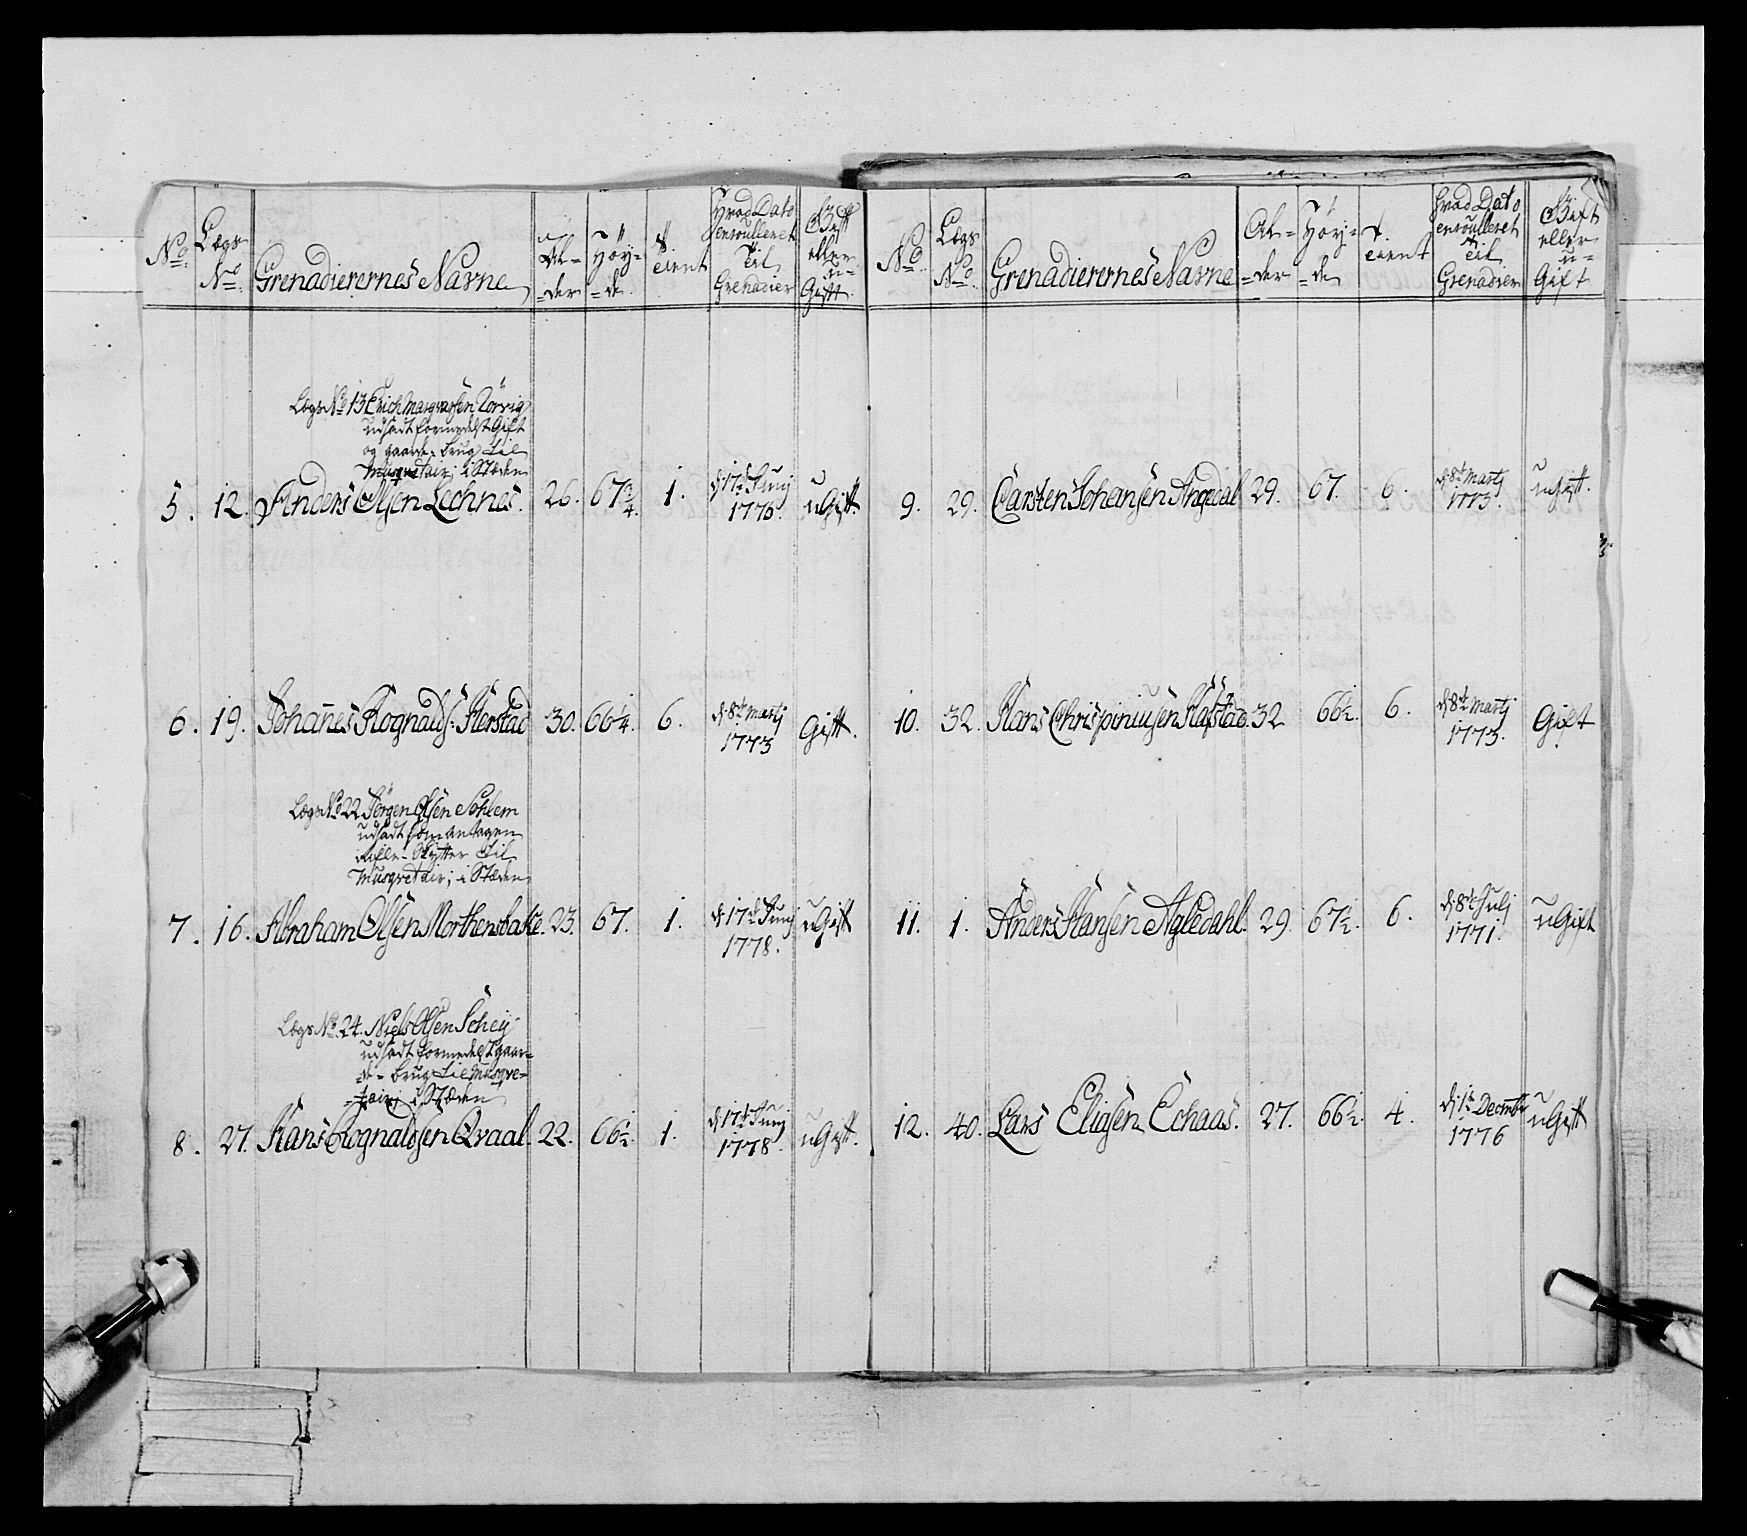 No. Lægs No. Grenadierernes Navne Al-der Høy-de T. tient Hvad Dato enroulleret til Grenadier Gift eller u-Gift
Lægs No 13 Erich Margvarsen Torvig
udsadt formedelst Gift
og gaards brug til
Musqvetair, i Stæden
5. 12. Anders Olsen Lechnes. 26. 67 3/4. 1. d. 17de Junj 1778. uGift.
6. 19. Johanes Rognalds: Herstad 30. 66 1/4. 6. d. 8de Martj 1773 Gift.
Lægs No 22 Jørgen Olsen Solhem
udsadt som antagen
Skytter til
Musqvetair, i Stæden
7. 16. Abraham Olsen Morthensbake. 23. 67. 1. d. 17de Junj 1778. uGift
Lægs No. 24. Niels Olsen Schey
udsadt formedelst gaar-
de-brug til Musqve-
tair, i Stæden
8. 27. Hans Rognaldsen Qvaal. 22. 66 1/2. 1. d. 17de Junj 1778. uGift.
No. Lægs No. Grenadierernes Navne Al-der Høy-de T. tient Hvad Dato enroulleret til Grenadier Gift eller u-Gift
9. 29. Carsten Johansen Angedal 29. 67. 6. d. 8de Martj 1773. uGift.
10. 32. Hans Chrispiniusen Hafstad. 32 66 1/2. 6. d. 8de Martj 1773. Gift
11. 1. Anders Hansen Agledahl. 29. 67 1/2. 6. d. 8de Julj 1771. uGift
12. 40. Lars Eliasen Echaas. 27. 66 1/2. 4. d. 1te Decembr 1776 uGift